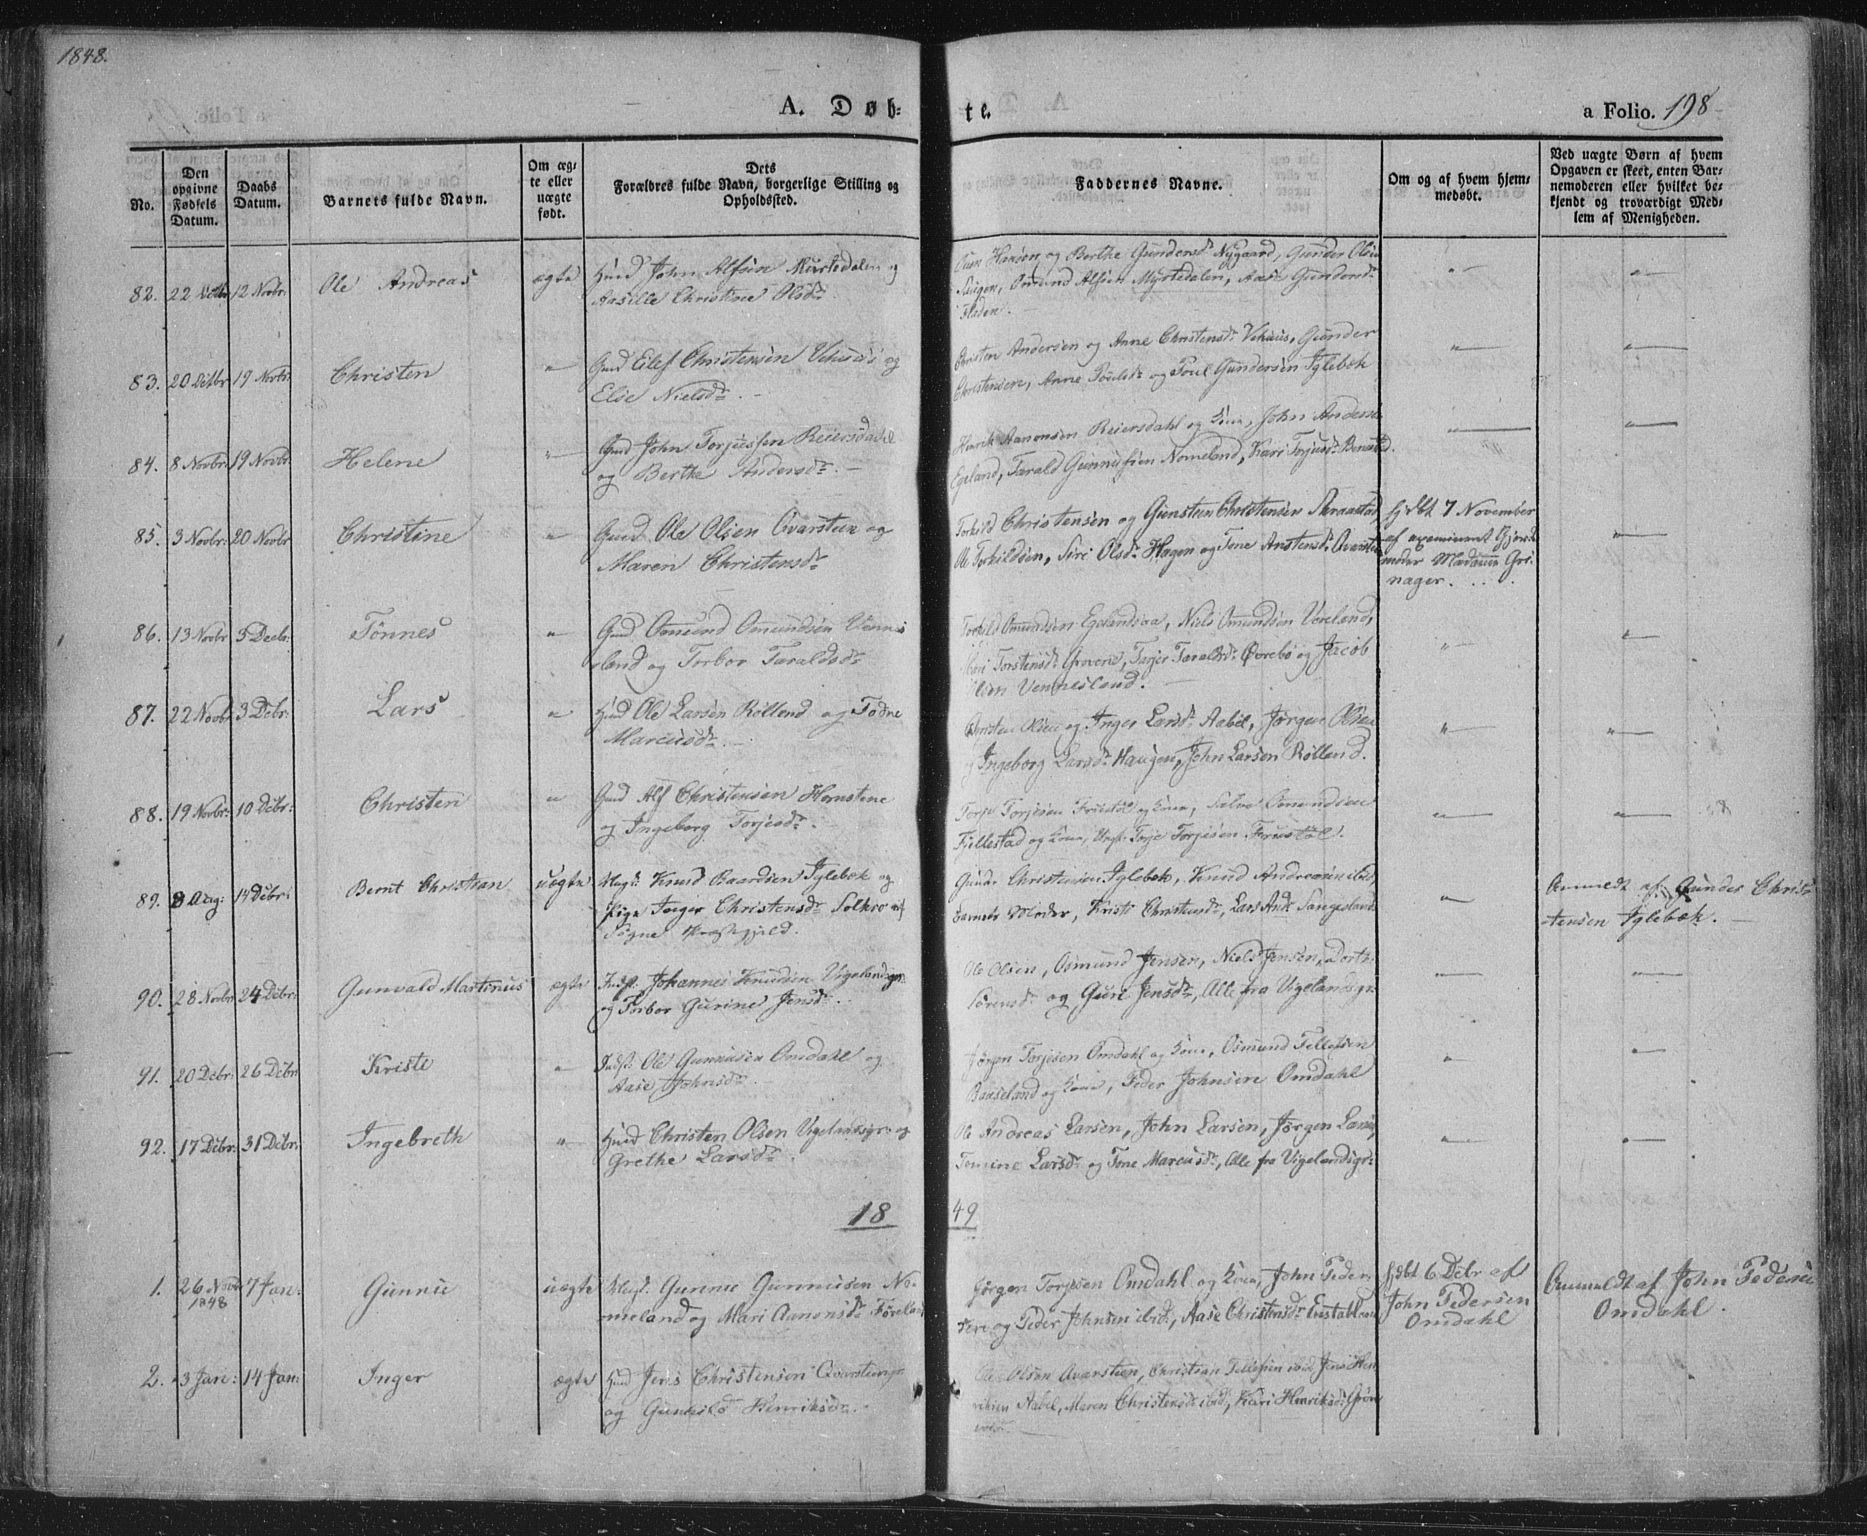 1848.
A. Døb-
te.
a Folio. 198
No.
Den opgivne Fødsels Datum.
Daabs Datum.
Barnets fulde Navn.
Om ægte eller uægte født.
Dets Forældres fulde Navn, borgerlige Stilling og Opholdssted.
Faddernes Navne.
Om og af hvem hjemmedøbt.
Ved uægte Børn af hvem Opgaven er skeet, enten Barnemoderen eller hvilket bekjendt og troværdigt Medlem af Menigheden.
82. 22 Octbr 12 Novbr: Ole Andreas ægte Huusmd John Alfsen Myrtedalen og
Aasille Christine Olsdr
og Berthe Gundersdr Nygaard, Gunder Olsen
Haugen, Omund Alfsen Myrtedalen, Aase Gundersdr
Fladen.
83. 20 Octbr 19 Novbr: Christen " Gmd Eilef Christensen Vehuus og
Else Nielsdr.
Christen Andersen og Anne Christensdr Vehuus, Gunder
Christensen, Anne Poulsdr og Poul Gundersen Iglebæk
84. 8 Novbr: 19 Novbr. Helene " Gmd John Torjussen Reiersdahl
og Berthe Andersdr.
Henrik Aanonsen Reiersdahl og Kone, John Anderse
Egeland, Tarald Gunnufsen Nomeland, Kari Torjusdr
85. 3 Novbr: 20 Novbr Christine " Gmd Ole Olsen Qvarsteen og
Maren Christensdr
Torkild Christensen og Gunsteen Christensen Skraastad,
Ole Torkildsen, Siri Olsdr Hagen og Tone Anstensdr Qvarsteen
hjdbt 7 November
af examineret Gjord-
moder Madame Gri-
nager.
86. 13 Novbr 3 Decbr: Tönnes " Gmd. Omund Omundsen Vennes-
land og Torbor Taraldsdr
Torkild Omundsen Egelandsaa, Niels Omundsen
Kari Torstensdr Groverie, Torjer Taraldsdr Øvrebø og Jacob
Olsen Vennesland.
87. 22 Novbr 3 Dcbr: Lars " Hmd Ole Larsen Röllend og Todne
Marcusdr.
Christen Olsen og Inger Larsdr Aabel, Jörgen Olsen
og Ingeborg Larsdr Haugen, John Larsen Röllend.
88. 19 Novbr: 10 Dcbr: Christen " Gmd Alf Christensen Homstene
og Ingeborg Torjesdr.
Torje Torjesen Fruestöl og Kone, Salve Omundsen
Fjellestad og Kone, Ungk. Torje Torjesen Fruestöl.
89. 8 Aug: 14 Dcbr: Bernt Christian uægte Ungk: Knud Baardsen Iglebæk og
Pige Inger Christensdr Solberg af
Søgne Præstegjeld.
Gunder Christensen Iglebæk, Knud Andreasen ibid,
Barnets Moder, Kristi Christensdr, Lars Andr. Sangesland
Anmeldt af Gunder Chris-
tensen Iglebæk.
90. 28 Novbr 24 Dcbr: Gunvald Martinus ægte Indst. Johannes Knudsen Vigelandsgr.
og Torbor Gurine Jensdr.
Ole Olsen, Osmund Jensen, Niels Jensen, Dorth.
Sörensdr og Guri Jensdr, Alle fra Vigelandsgr:
91. 20 Dcbr: 26 Dcbr Kristi " Indst. Ole Gunnusen Omdahl og
Aase Johnsdr.
Jörgen Torjesen Omdahl og Kone, Osmund Tellefsen
og Kone, Peder Johnsen Omdahl
92. 17 Dcbr: 31 Dcbr: Ingebreth " Hmd Christen Olsen Vigelandsgr: og
Grethe Larsdr
Ole Andreas Larsen, John Larsen, Jörgen Larsen,
Tomine Larsdr og Tone Marcusdr, Alle fra Vigelandsgr:
18 49
1. 26 Novbr 1848 7 Jan: Gunnu uægte Ungk. Gunnu Gunnusen No-
meland og Mari Aanonsdr
Jörgen Torjesen Omdahl og Kone, John Peder-
sen og Peder Johnsen ibid, Aase Christensdr
hjdbt 6 Dcbr af
John Pedersen
Omdahl
Anmeldt af John Pedersen
Omdahl.
2. 3 Jan: 14 Jan: Inger ægte Hmd Jens Christensen Qvarsteen
og Gunnild Henriksdr.
Ole Olsen Qvarsteen, Christian Tellefsen ibid, Jens Hen-
riksen Aabel, Maren Christensdr ibid, Kari Henriksdr